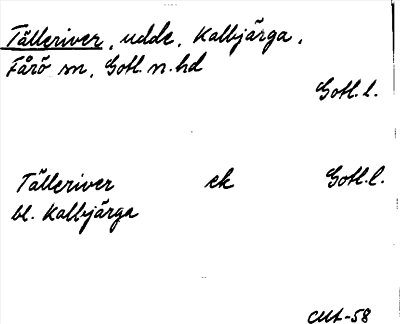 Tälleriver, udde, Kalbjärga,
Fårö sn, Gotl. n. hd
Gotl. l.
Tälleriver ek Gotl. l.
bl. Kalbjärga
-58